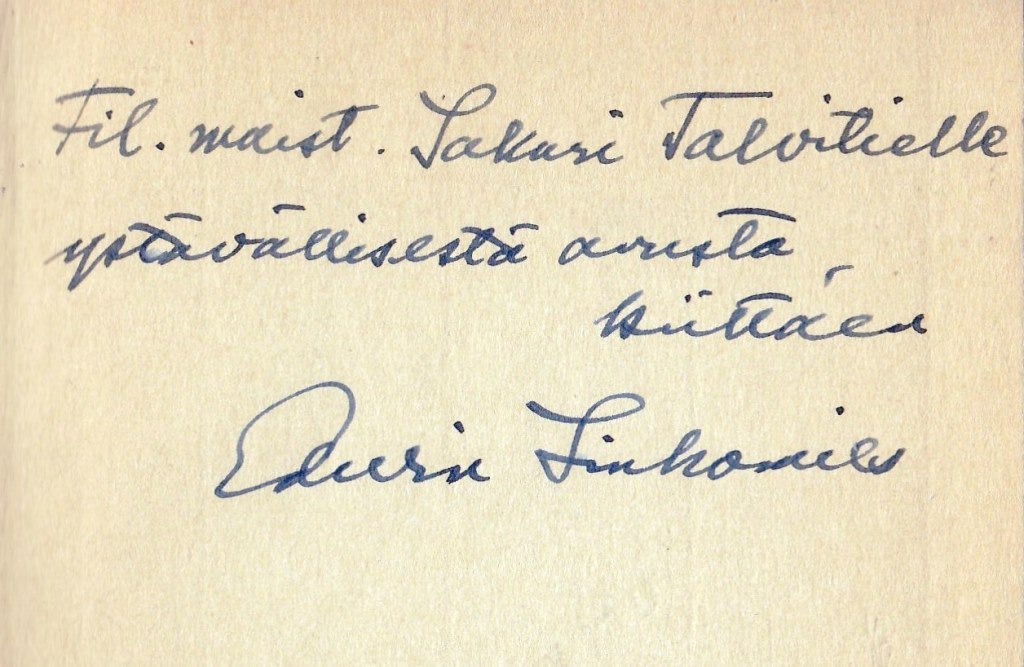 Fil. maist. Sakari Talvitielle
ystävällisestä avusta
kiittäen
Edwin Linkomies